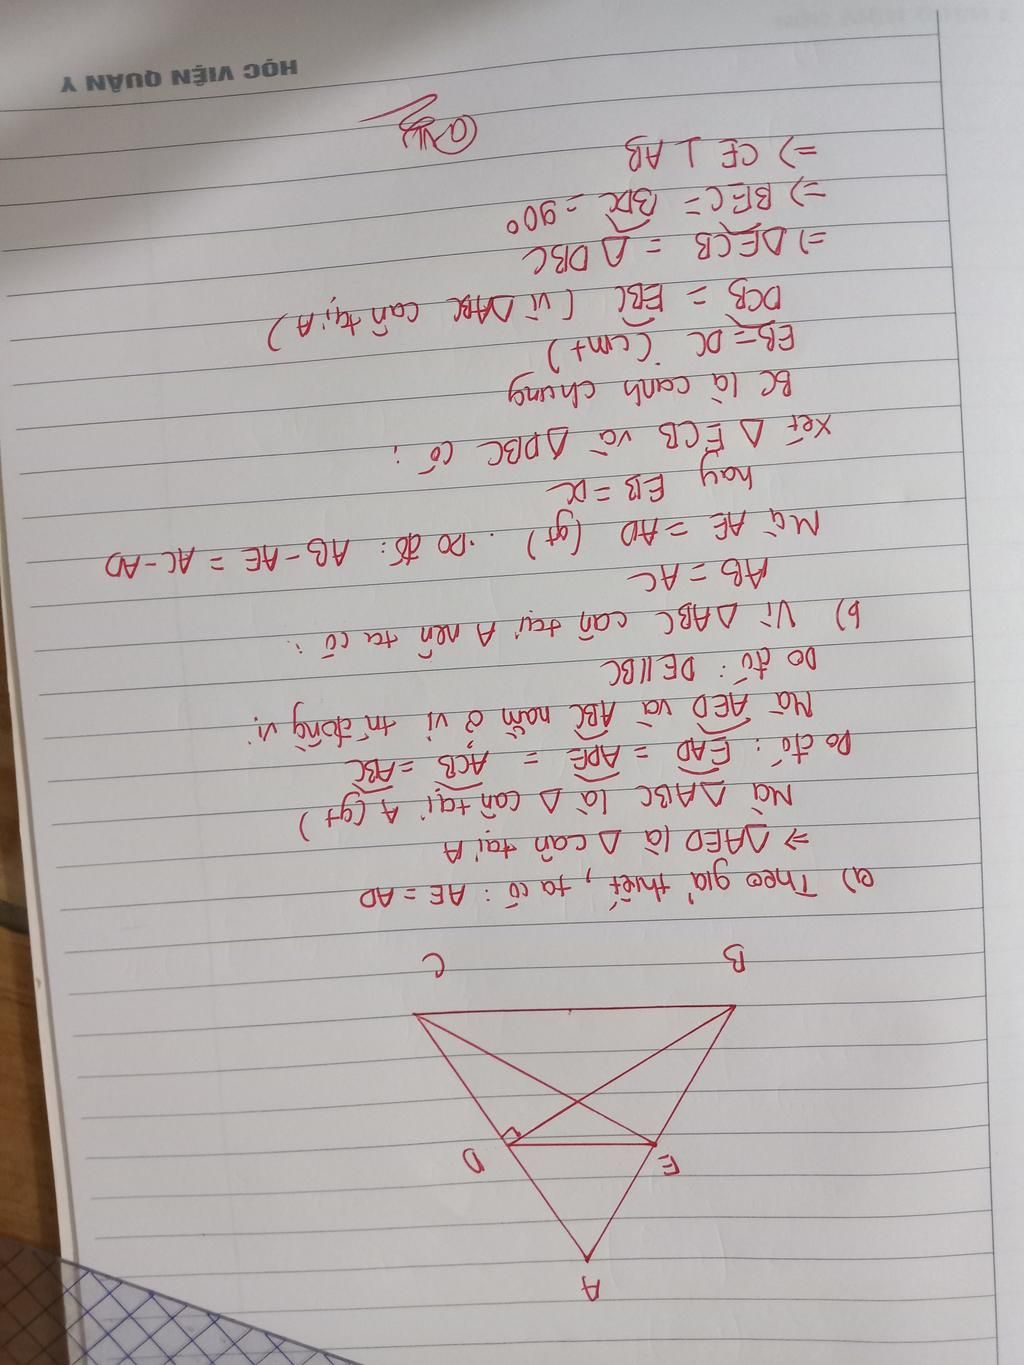 A
E
D
B
C
a) Theo giả thiết, ta có: AE = AD
=> ΔAED là Δ cân tại A
Mà ΔABC là Δ cân tại A (gt)
Do đó: EAD = ADE = ACB = ABC
Mà AED và ABC nằm ở vị trí đồng vị
Do đó: DE//BC
b) Vì ΔABC cân tại A nên ta có:
AB = AC
Mà AE = AD (gt) . Do đó: AB-AE = AC-AD
hay EB = DC
Xét ΔECB và ΔDBC có:
BC là cạnh chung
EB = DC (cmt)
DCB = EBC (vì ΔABC cân tại A)
=> ΔECB = ΔDBC
=> BEC = BDC = 90°
=> CE ⊥ AB
HỌC VIỆN QUÂN Y